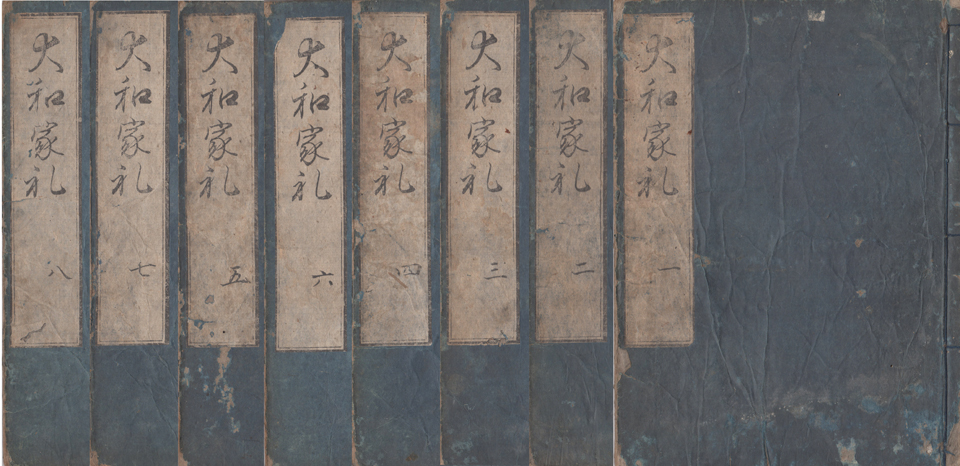 大和家礼 一
大和家礼 二
大和家礼 三
大和家礼 四
大和家礼 六
大和家礼 五
大和家礼 七
大和家礼 八